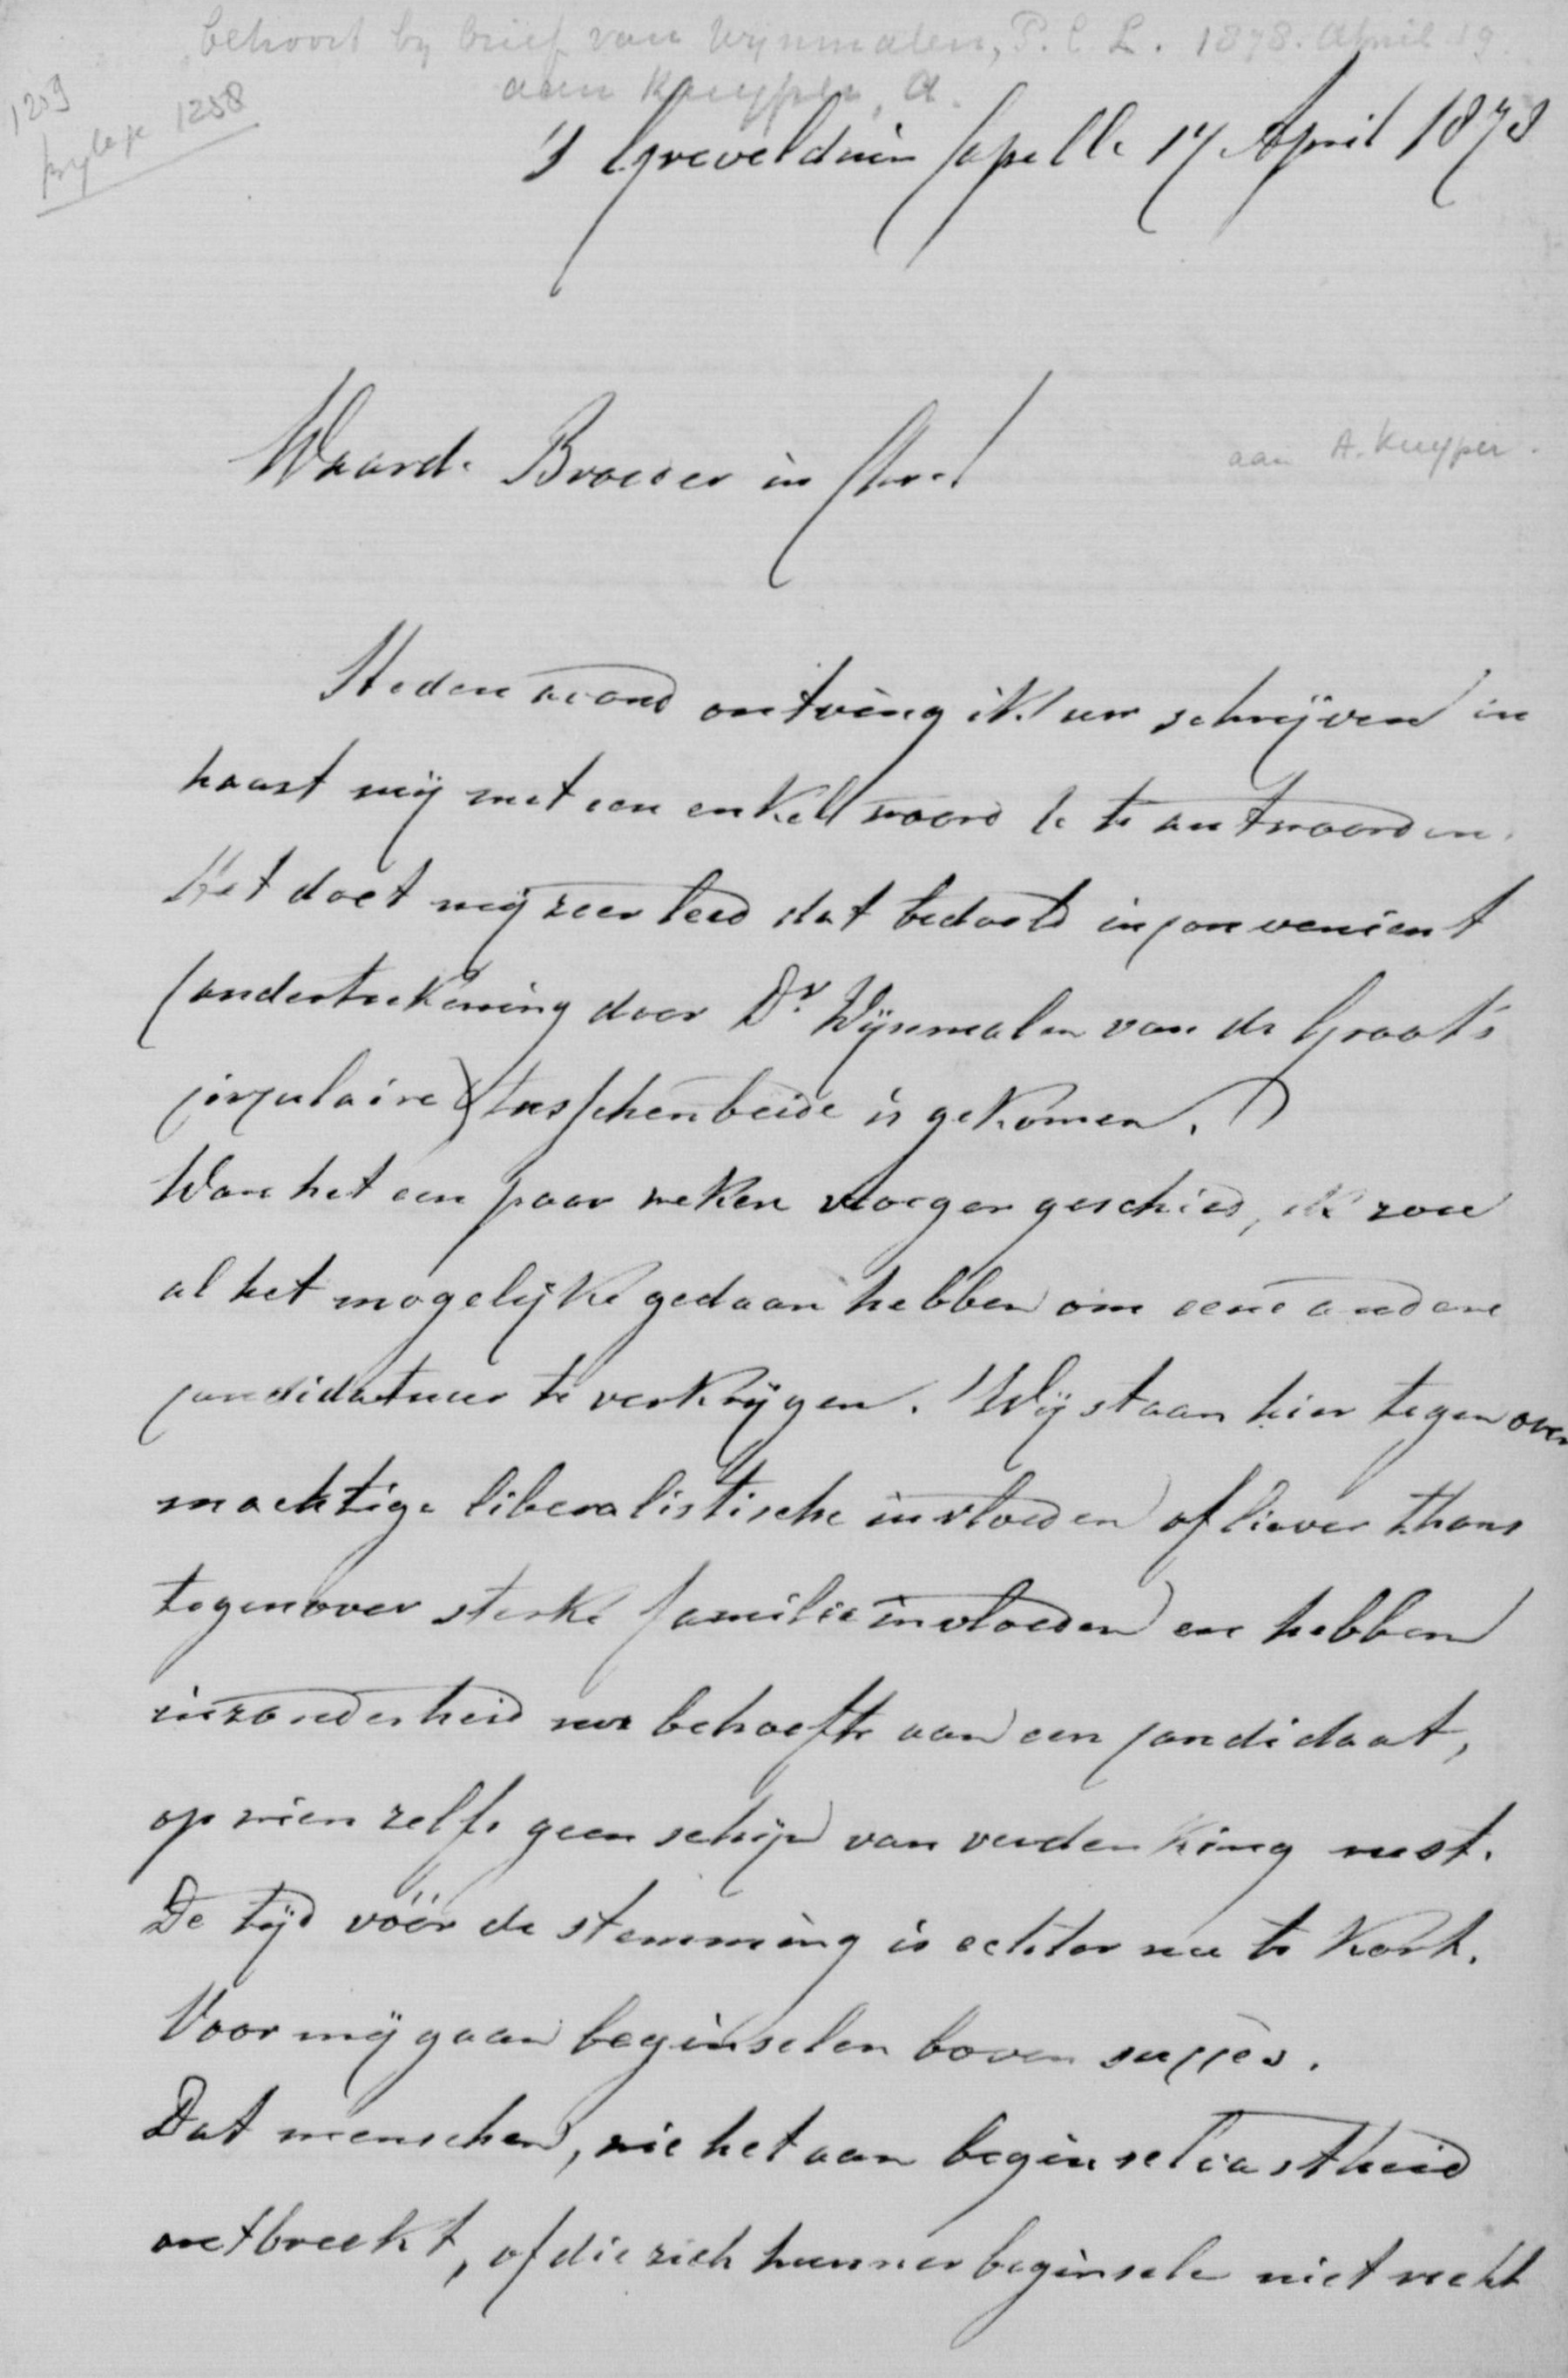 behoort by brief van Wynmalen, P. C. L. 1878. April 19.
aan Kuyper, A.
1259
bylage 1258
's Grevelduin Capelle 17 April 1878
Waarde Broeder in Chro!
aan A. Kuyper.
Heden avond ontving ik uw schrijven en
haast mij met een enkel woord te antwoorden.
Het doet mij zeer leed dat bedoeld inconvenient
(ondertekening door Dr. Wijnmalen van de Groot's
circulaire) tusschenbeide is gekomen.
Ware het een paar weken vroeger geschied, ik zou
al het mogelijke gedaan hebben om eene andere
candidatuur te verkrijgen. Wij staan hier tegenover
machtige liberalistische invloeden of liever thans
tegenover sterke familie invloeden en hebben
inzonderheid nu behoefte aan een candidaat,
op wien zelfs geen schijn van verdenking rust.
De tijd vóór de stemming is echter nu te kort.
Voor mij gaan beginselen boven succes.
Dat menschen, wie het aan beginselvastheid
ontbreekt, of die zich hunner beginselen niet recht